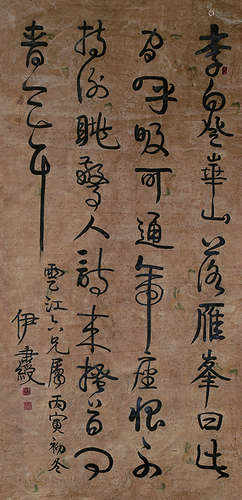 李白登華山落雁峯曰此
間呼吸可通帝座恨不
持謝朓驚人詩來搔首問
青天耳
雲江六兄屬丙寅初冬
伊秉綬